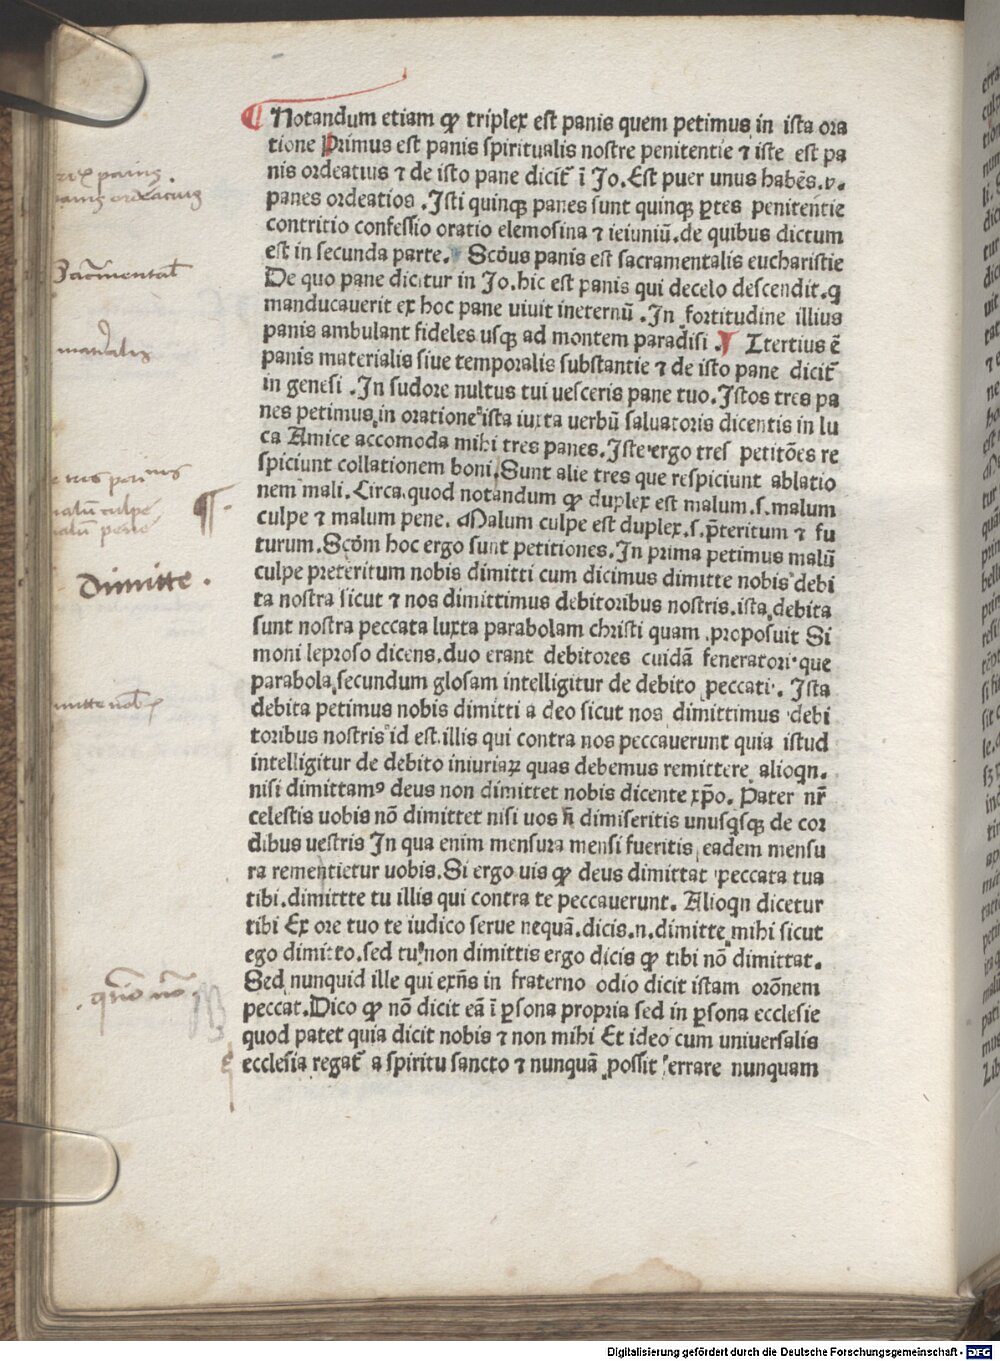 ¶ Notandum etiam ꝙ triplex est panis quem petimus in ista ora
tione Primus est panis spiritualis nostre penitentie ⁊ iste est pa
nis ordeatius ⁊ de isto pane dicit᷑ ī Jo. Est puer unus habēs .v.
panes ordeatios . Isti quinqꝫ panes sunt quinqꝫ ꝑtes penitentie
contritio confessio oratio elemosina ⁊ ieiuniū. de quibus dictum
est in secunda parte. Scōus panis est sacramentalis eucharistie
De quo pane dicitur in Jo. hic est panis qui decelo descendit. q
manducauerit ex hoc pane uiuit ineternū . In fortitudine illius
panis ambulant fideles usqꝫ ad montem paradisi . ¶ Itertius ē
panis materialis siue temporalis substantie ⁊ de isto pane dicit᷑
in genesi . In sudore uultus tui uesceris pane tuo. Istos tres pa
nes petimus in oratione ista iuxta uerbū saluatoris dicentis in lu
ca Amice accomoda mihi tres panes. Iste ergo tres petitōes re
spiciunt collationem boni. Sunt alie tres que respiciunt ablatio
nem mali. Circa quod notandum ꝙ duplex est malum. s. malum
culpe ⁊ malum pene. Malum culpe est duplex. s. p̄teritum ⁊ fu
turum. Scōm hoc ergo sunt petitiones. In prima petimus malū
culpe preteritum nobis dimitti cum dicimus dimitte nobis debi
ta nostra sicut ⁊ nos dimittimus debitoribus nostris. ista debita
sunt nostra peccata Iuxta parabolam christi quam proposuit Si
moni leproso dicens. duo erant debitores cuidā feneratori que
parabola secundum glosam intelligitur de debito peccati . Ista
debita petimus nobis dimitti a deo sicut nos dimittimus debi
toribus nostris id est. illis qui contra nos peccauerunt quia istud
intelligitur de debito iniuriaꝝ quas debemus remittere alioqn.
nisi dimittamꝰ deus non dimittet nobis dicente xp̄o. Pater nr̄
celestis uobis nō dimittet nisi uos n̄ dimiseritis unusqsqꝫ de cor
dibus uestris In qua enim mensura mensi fueritis eadem mensu
ra rementietur uobis. Si ergo uis ꝙ deus dimittat peccata tua
tibi. dimittte tu illis qui contra te peccauerunt. Alioqn dicetur
tibi Ex ore tuo te iudico serue nequā. dicis. n. dimitte mihi sicut
ego dimitto. sed tu non dimittis ergo dicis ꝙ tibi nō dimittat.
Sed nunquid ille qui exn̄s in fraterno odio dicit istam orōnem
peccat. Dico ꝙ nō dicit eā ī ꝑsona propria sed in ꝑsona ecclesie
quod patet quia dicit nobis ⁊ non mihi Et ideo cum uniuersalis
ecclesia regat᷑ a spiritu sancto ⁊ nunquā possit errare nunquam
Dimitte .
Digitalisierung gefördert durch die Deutsche Forschungsgemeinschaft - DFG